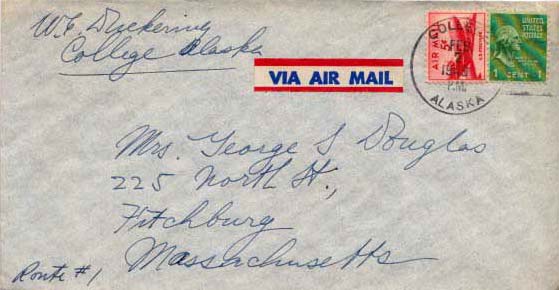 W. E. Duckering
College Alaska
AIR MAIL
UNITED STATES
POSTAGE
1 CENT 1
FEB
ALASKA
VIA AIR MAIL
Mrs. George S Douglas
225 North St.,
Fitchburg
Massachusetts
Route #1